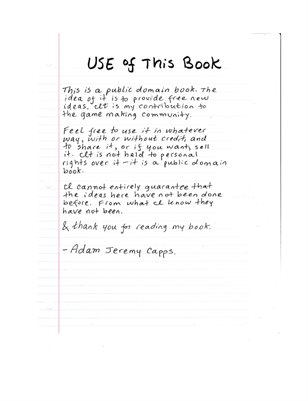 USE of This Book
This is a public domain book. The
idea of it is to provide free new
ideas, It is my contribution to
the game making community.
Feel free to use it in whatever
way, with or without credit, and
to share it, or if you want, sell
it. It is not held to personal
rights over it - it is a public domain
book.
I cannot entirely guarantee that
the ideas here have not been done
before. From what I know they
have not been.
& thank you for reading my book.
- Adam Jeremy Capps.